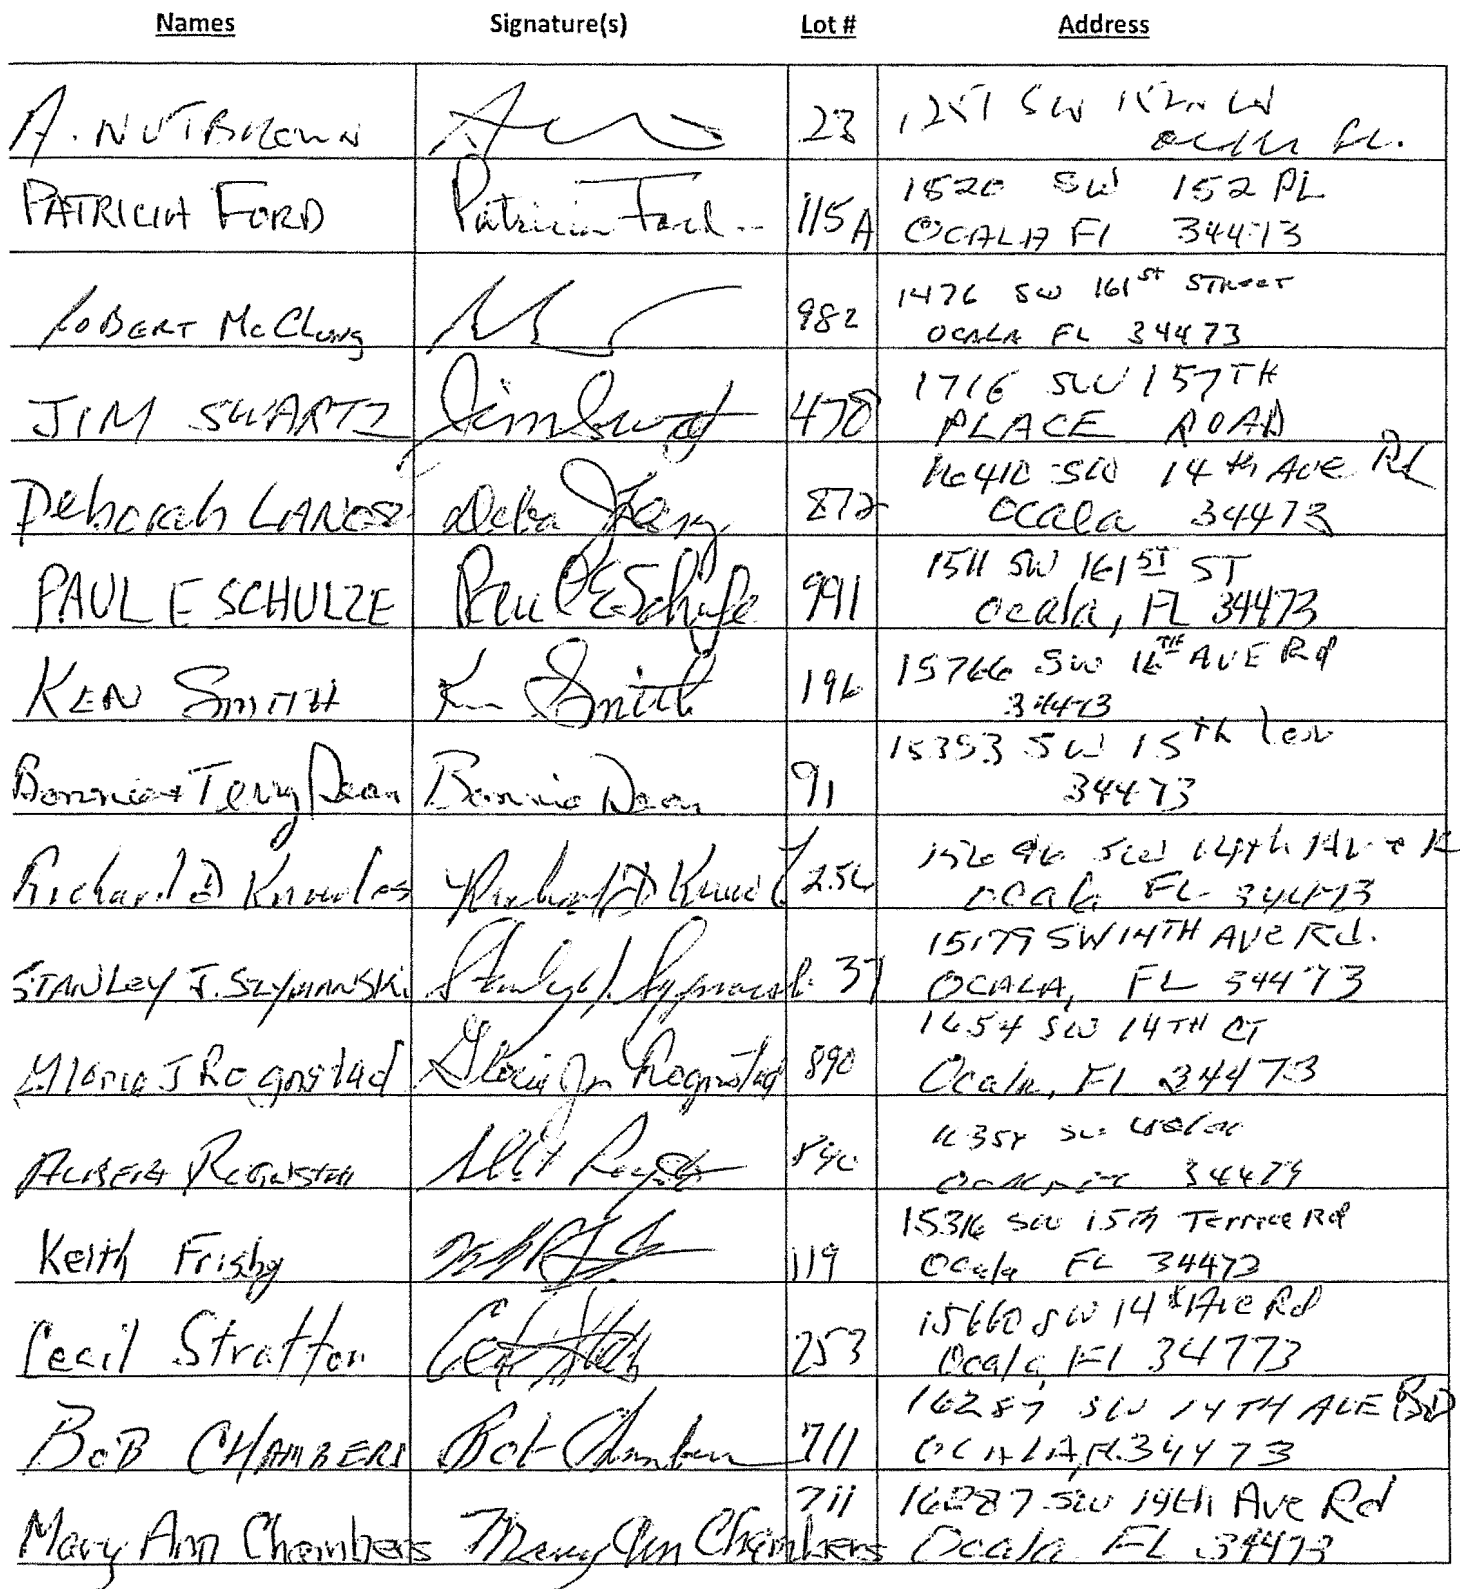 Names Signature(s) Lot # Address
A. NUTBROWN 23 1251 SW 152 LN
PATRICIA FORD Patricia Ford 115A 1520 SW 152 PL
OCALA Fl 34473
ROBERT McClung 982 1476 SW 161ST STREET
OCALA FL 34473
JIM SWARTZ Jim Swartz 478 1716 SW 157TH
PLACE ROAD
Deborah 872 16410 SW 14th Ave Rd
Ocala 34473
PAUL E SCHULZE Paul E Schulze 991 1511 SW 161ST ST
Ocala, FL 34473
KEN SMITH Ken Smith 196 15766 SW 16TH AVE Rd
34473
Bonnie + Terry Dean Bonnie Dean 91 15353 SW 15th
34473
Richard D Knowles Richard D 256 15696 SW 14th Ave R
Ocala FL 34473
STANLEY J. SZYMANSKI 37 15179 SW 14TH AVE Rd.
OCALA, FL 34473
Gloria J Rognstad Gloria J Rognstad 890 1654 SW 14TH CT
Ocala, Fl 34473
ALBERT ROGNSTAD 890 SW
Keith Frisby 119 15316 SW 15th Terrace Rd
Ocala FL 34473
Cecil Stratton 253 15660 SW 14th Ave Rd
Ocala, Fl 34773
BOB CHAMBERS Bob Chambers 711 16287 SW 14TH AVE RD
OCALA, FL. 34473
711 16287 SW 14th Ave Rd
Mary Ann Chambers Mary Ann Chambers Ocala FL 34473